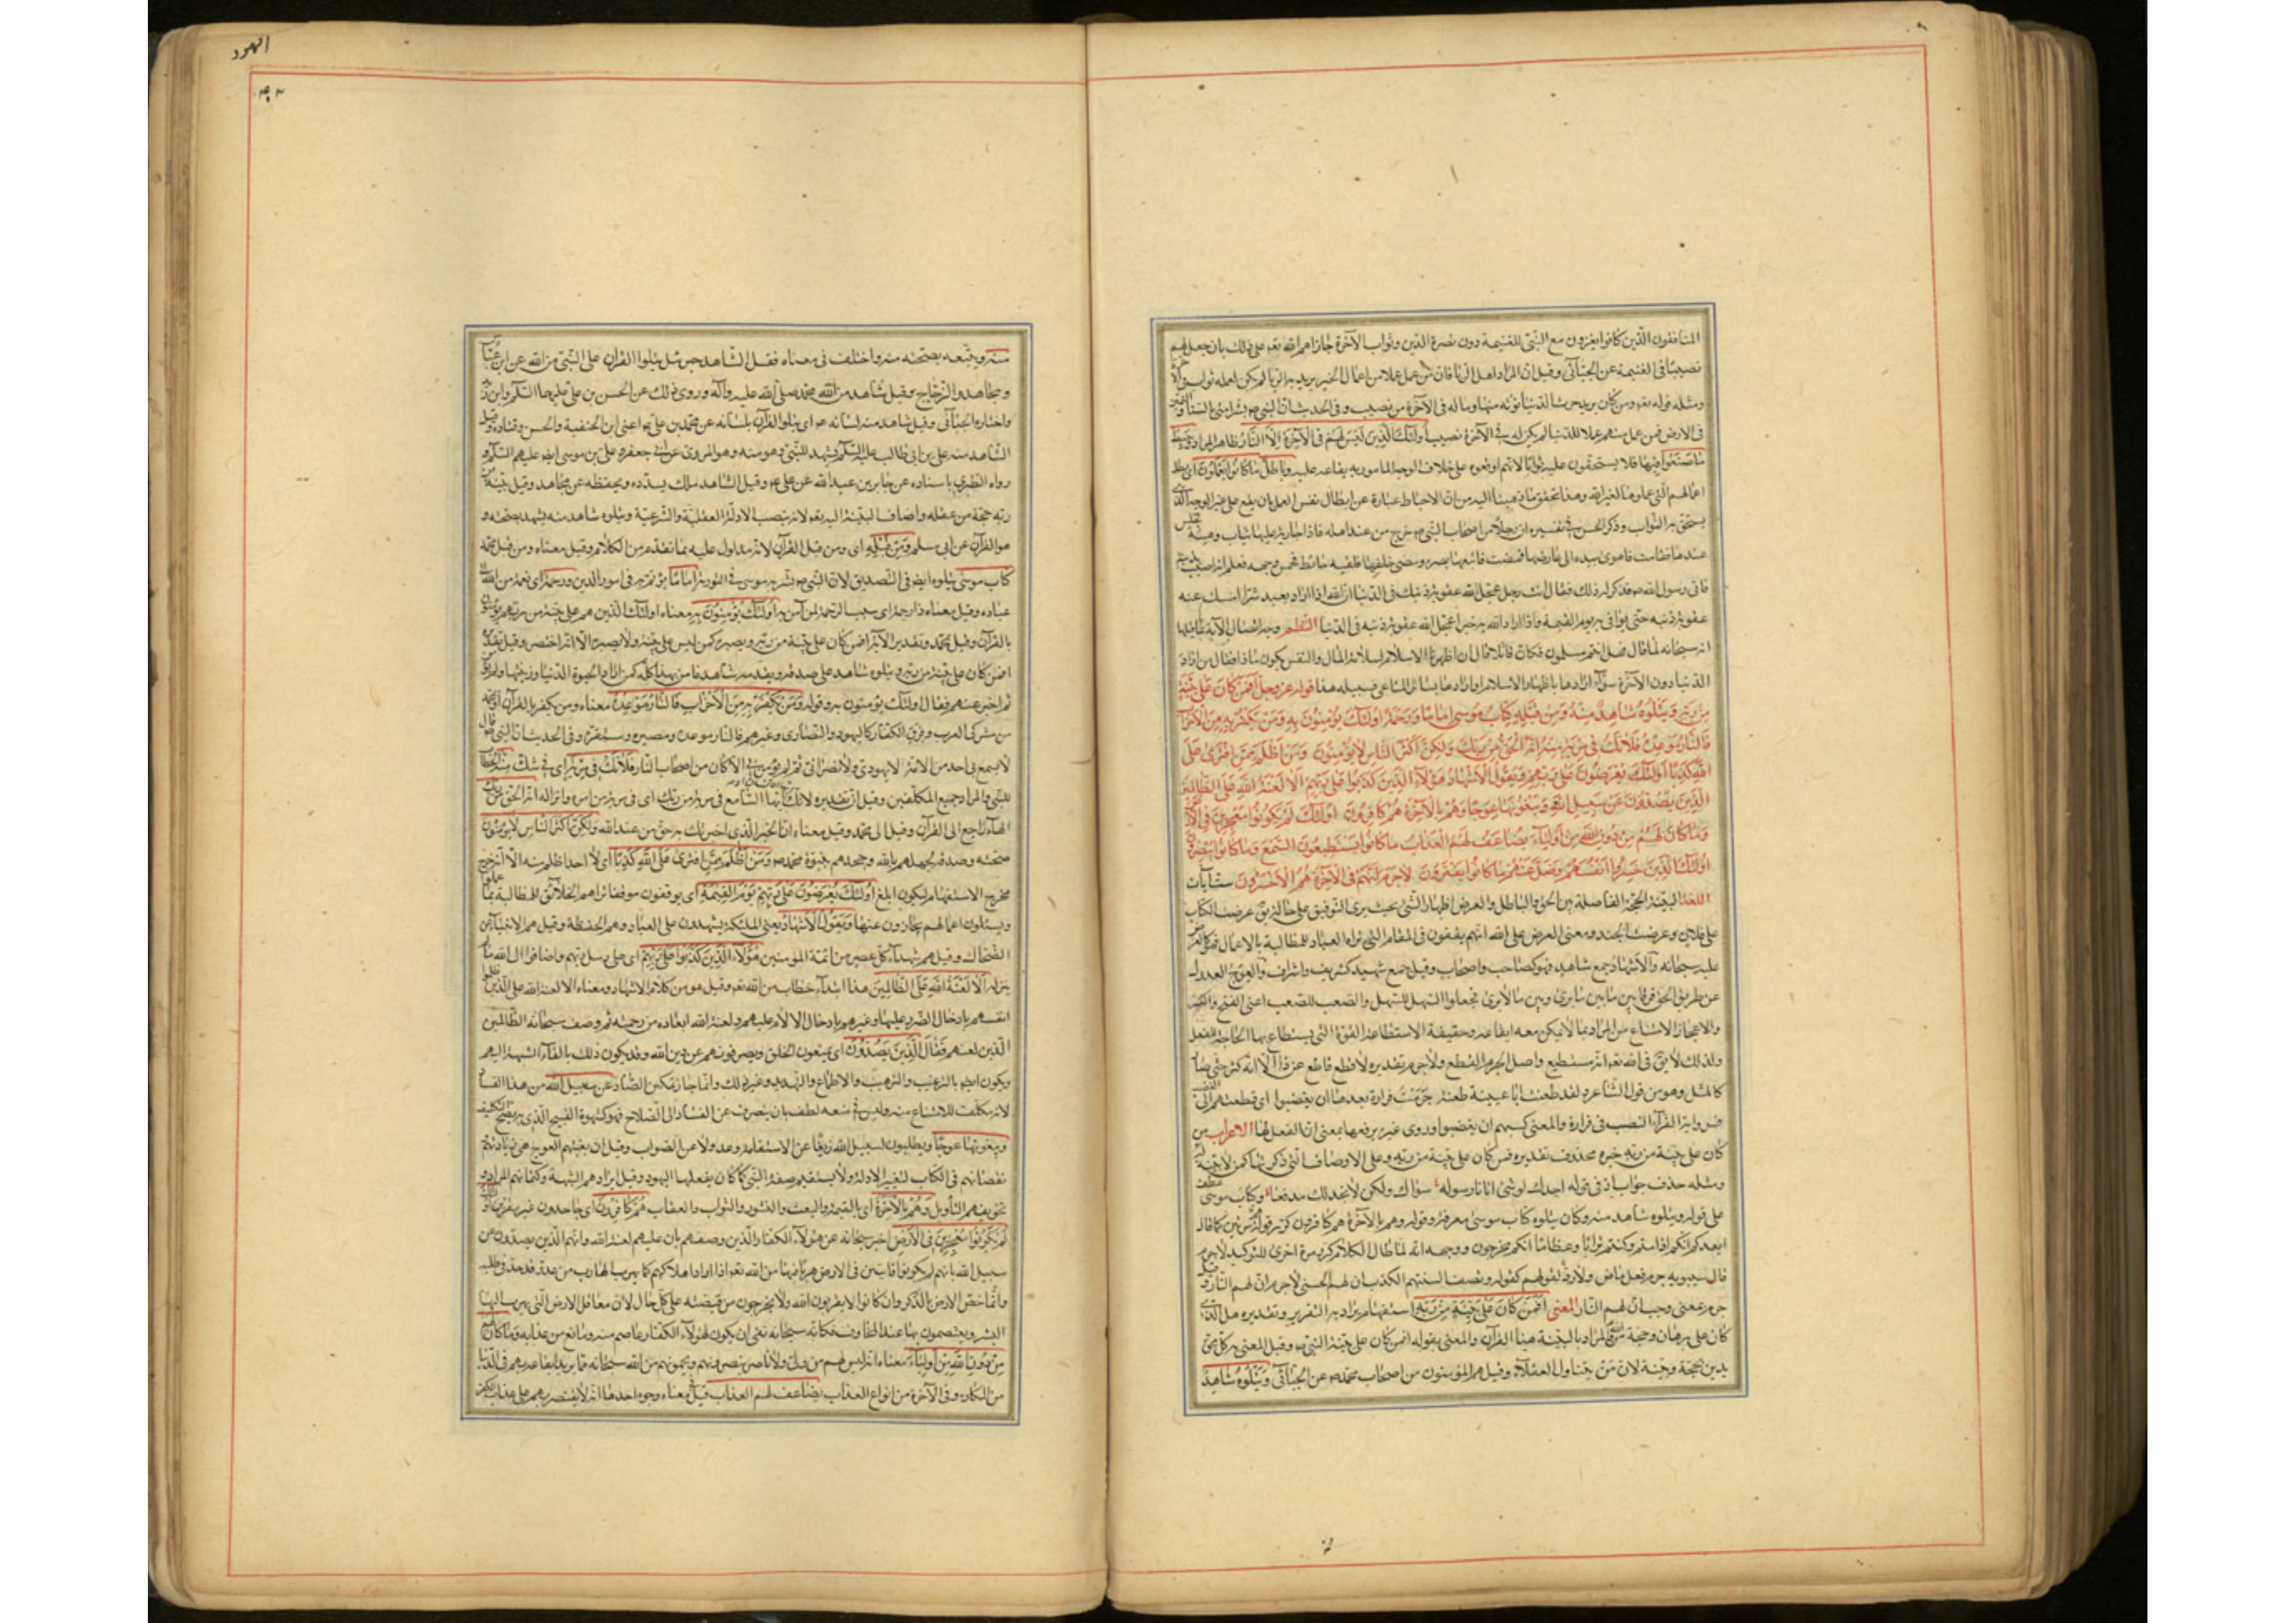 المنافقون الذين كانوا يغزون مع النبي للغنيمة دون نصرة الدين وثواب الآخرة جازاهم الله تعم على ذلك بان جعل لهم
نصيبا في الغنيمة عن الجبائي وقيل ان المراد اهل الريا فان من عمل عملا من اعمال الخير يريد به الريا لم يكن لعمله ثواب في الآ
ومثله قوله تعم ومن كان يريد حرث الدنيا نؤته منها وماله في الآخرة من نصيب وفي الحديث ان النبي ص بشر امتي بالسناء والتمكين
في الارض فمن عمل منهم عملا للدنيا لم يكن له في الآخرة نصيب اولئك الذين ليس لهم في الآخرة الا النار ظاهر المراد وحبط
ما صنعوا فيها فلا يستحقون عليه ثوابا لانهم اوقعوه على خلاف الوجه المامور به بقاعه عليه وباطل ما كانوا يعملون اى بطل
اعمالهم التي عملوها لغير الله وهذا تحقق ما ذهبنا اليه من ان الاحباط عبارة عن ابطال نفس العمل بان يقع على غير الوجه الذي
يستحق به الثواب وذكر الحسن في تفسيره ان رجلا من اصحاب النبي ص خرج من عند اهله فاذا جارية عليها ثياب وهيئة
عندها فقامت فاهوى بيده الى عارضها فمضت فاتبعها بصره ومضى خلفها فلقيه حائط فخمش وجهه فعلم انه اصيب
فاتى رسول الله ص فذكر له ذلك فقال انت رجل عجل الله عقوبة ذنبك في الدنيا ان الله اذا اراد بعبد شرا امسك عنه
عقوبة ذنبه حتى يوافى به يوم القيمة واذا اراد الله به خيرا عجل الله عقوبة ذنبه في الدنيا النظم وجه اتصال الآية بما قبلها
انه سبحانه لما قال فهل انتم مسلمون فكان قائلا قال ان اظهرنا الاسلام لسلامة المال والنفس يكون ماذا فقال من اراد
الدنيا دون الآخرة سواء ارادها باظهار الاسلام او ارادها بسائر المساعي فسبيله هذا قوله عز وجل افمن كان على بينة
من ربه ويتلوه شاهد منه ومن قبله كتاب موسى اماما ورحمة اولئك يؤمنون به ومن يكفر به من الاحزاب
فالنار موعده فلا تك في مرية منه انه الحق من ربك ولكن اكثر الناس لا يؤمنون ومن اظلم ممن افترى على
الله كذبا اولئك يعرضون على ربهم ويقول الاشهاد هؤلاء الذين كذبوا على ربهم الا لعنة الله على الظالمين
الذين يصدون عن سبيل الله ويبغونها عوجا وهم بالآخرة هم كافرون اولئك لم يكونوا معجزين في الارض
وما كان لهم من دون الله من اولياء يضاعف لهم العذاب ما كانوا يستطيعون السمع وما كانوا يبصرون
اولئك الذين خسروا انفسهم وضل عنهم ما كانوا يفترون لا جرم انهم في الآخرة هم الاخسرون ست آيات
اللغة البينة الحجة الفاصلة بين الحق والباطل والعرض اظهار الشئ بحيث يرى للتوقيف على حاله يق عرضت الكتاب
على فلان وعرضت الجند ومعنى العرض على الله انهم يقفون في المقام الذي يراه العباد للمطالبة بالاعمال فهو كالعرض
عليه سبحانه والاشهاد جمع شاهد فهو كصاحب واصحاب وقيل جمع شهيد كشريف واشراف والعوج العدول
عن طريق الحق
والاعجاز الامتناع من المراد بما لا يمكن معه ايقاعه وحقيقة الاستطاعة القوة التي يستطاع بها الجارحة للفعل
ولذلك لا يق في الله تعم انه مستطيع واصل الجرم القطع ولا جرم تقديره لا قطع قاطع عن ذا الا انه كثر حتى صار
كالمثل وهو من قول الشاعر ولقد طعنت ابا عيينة طعنة جرمت فزارة بعدها ان يغضبوا اى قطعتهم الى
الغضب ورواية الفراء النصب في فزارة والمعنى كسبهم ان يغضبوا وروى غيره برفعها بمعنى ان الفعل لها الاعراب من
كان على بينة من ربه خبره محذوف تقديره افمن كان على بينة من ربه وعلى الاوصاف التي ذكرناها كمن لا بينة له
ومثله حذف جواب لو في قوله اجدك لو شئ اتانا رسوله سواك ولكن لم نجد لك مدفعا وكتاب موسى عطف
على قوله ويتلوه شاهد منه وكان يتلوه كتاب موسى معرفة وقوله وهم بالآخرة هم كافرون كرر قوله هم مرتين كما قال
ايعدكم انكم اذا متم وكنتم ترابا وعظاما انكم مخرجون ووجهه انه لما طال الكلام كرر مرة اخرى للتوكيد لا جرم
قال سيبويه جرم فعل ماض ولا رد لقولهم كقوله وتصف السنتهم الكذب ان لهم الحسنى لا جرم ان لهم النار وقيل
جرم بمعنى وجب ان لهم النار المعنى افمن كان على بينة من ربه استفهام يراد به التقرير وتقديره هل الذي
كان على برهان وحجة من الله والمراد بالبينة هنا القرآن والمعنى بقوله افمن كان على بينة النبي ص وقيل المعنى به كل محق
يدين بحجة وبينة لان من يتناول العقلاء وقيل هم المؤمنون من اصحاب محمد ص عن الجبائي ويتلوه شاهد
الهود
منه ويتبعه بصحته منه واختلف في معناه فقيل الشاهد جبرئيل يتلوا القرآن على النبي من الله عن ابن عباس
ومجاهد والزجاج وقيل شاهد من الله محمد صلى الله عليه وآله وروى ذلك عن الحسن بن علي عليهما السلام وابن زيد
واختاره الجبائي وقيل شاهد منه لسانه عم اى يتلوا القرآن بلسانه عن محمد بن علي عم اعنى ابن الحنفية والحسن وقتادة وقيل
الشاهد منه علي بن ابي طالب عليه السلم يشهد للنبي وهو منه وهو المروى عن ابي جعفر وعلي بن موسى الرضا عليهم السلم و
رواه الطبري باسناده عن جابر بن عبد الله عن علي عم وقيل الشاهد ملك يسدده ويحفظه عن مجاهد وقيل بينة من
ربه حجة من عقله واضاف البينة اليه تعم لانه ينصب الادلة العقلية والشرعية ويتلوه شاهد منه يشهد بصحته و
هو القرآن عن ابي مسلم ومن قبله اى ومن قبل القرآن لانه مدلول عليه بما تقدم من الكلام وقيل معناه ومن قبل محمد
كتاب موسى يتلوه ايضا في التصديق لان النبي ص بشر به موسى في التورية اماما يؤتم به في امور الدين ورحمة اى نعمة من الله
عباده وقيل معناه ذا رحمة اى سبب الرحمة لمن آمن به اولئك يؤمنون به معناه اولئك الذين هم على بينة من ربهم يؤمنون
بالقرآن وقيل بمحمد وتقدير الآية افمن كان على بينة من ربه وبصيرة كمن ليس على بينة ولا بصيرة الا انه اختصر وقيل تقديره
افمن كان على بينة من ربه ويتلوه شاهد على صدقه ويقدمه شاهد فآمن بهذا كله كمن اراد الحيوة الدنيا وزينتها ولم يؤمن
ثم اخبر عنهم فقال اولئك يؤمنون به وقوله ومن يكفر به من الاحزاب فالنار موعده معناه ومن يكفر بالقرآن او محمد
من مشركى العرب وفرق الكفار كاليهود والنصارى وغيرهم فالنار موعده ومصيره ومستقره وفي الحديث ان النبي قال
لا يسمع بي احد من الامة لا يهودي ولا نصراني ثم لم يؤمن بي الا كان من اصحاب النار فلا تك في مرية اى في شك منه الخطاب
للنبي والمراد جميع المكلفين وقيل ان تقديره لا تك ايها السامع في مرية من ربك اى في مرية من امره وانزاله انه الحق من ربك
الهاء راجع الى القرآن وقيل الى محمد وقيل معناه ان الخبر الذي اخبرتك به حق من عند الله ولكن اكثر الناس لا يؤمنون
بصحته وصدقه لجهلهم بالله وجحدهم بنبوة محمد ص ومن اظلم ممن افترى على الله كذبا اى لا احد اظلم منه الا انه خرج
مخرج الاستفهام ليكون ابلغ اولئك يعرضون على ربهم يوم القيمة اى يوقفون موقفا يراهم الخلائق للمطالبة بما عملوا
ويسئلون اعمالهم يجازون عنها ويقول الاشهاد يعنى الملئكة يشهدون على العباد وهم الحفظة وقيل هم الانبياء عن
الضحاك وقيل هم شهداء كل عصر من ائمة المؤمنين هؤلاء الذين كذبوا على ربهم اى على رسل ربهم واضافوا الى الله ما لم
ينزله الا لعنة الله على الظالمين هذا ابتداء خطاب من الله تعم وقيل هو من كلام الاشهاد ومعناه الا لعنة الله على الذين ظلموا
انفسهم بادخال الضرر عليها وغيرهم بادخال الالام عليهم ولعنة الله ابعاده من رحمته ثم وصف سبحانه الظالمين
الذين لعنهم فقال الذين يصدون اى يمنعون الخلق ويصرفونهم عن دين الله وقد يكون ذلك بالقاء الشبهة اليهم
ويكون ايضا بالترغيب والترهيب والاطماع والتهديد وغير ذلك وانما جاز تمكين الضاد عن سبيل الله من هذا الفساد
لانه مكلف للامتناع منه وليس في منعه لطف بان ينصرف عن الفساد الى الصلاح فهو كشهوة القبيح الذي به يصح التكليف
ويبغونها عوجا ويطلبون لسبيل الله زيغا عن الاستقامة وعدولا عن الصواب وقيل ان بغيتهم العوج هى زيادتهم
نقصانهم في الكتاب لتغير الادلة ولا يستقيم صفة النبي كما كان يفعلها اليهود وقيل ايرادهم الشبهة وكتمانهم المراد و
تحريفهم التأويل وهم بالآخرة اى بالقيمة والبعث والنشور والثواب والعقاب هم كافرون اى جاحدون غير مقرين اولئك
لم يكونوا معجزين في الارض اخبر سبحانه عن هؤلاء الكفار الذين وصفهم بان عليهم لعنة الله وانهم الذين يصدون عن
سبيل الله بانهم لم يكونوا فائتين في الارض هربا فيها من الله تعم اذا اراد اهلاكهم كما يهرب الهارب من عدو قد جد في طلبه
وانما خص الارض بالذكر وان كانوا لا يفوتون الله ولا يخرجون من قبضته على كل حال لان معاقل الارض التي يهرب اليها
البشر ويعتصمون بها عند المخاوف فكانه سبحانه نفى ان يكون لهؤلاء الكفار عاصم منه ومانع من عذابه وما كان لهم
من دون الله من اولياء معناه انه ليس لهم من ولي ولا ناصر ينصرونهم ويحمونهم من الله سبحانه مما يريد ايقاعه بهم في الدنيا
من المكاره وفي الآخرة من انواع العذاب يضاعف لهم العذاب قيل في معناه وجوه احدها انه لا يقتصر بهم على عذاب الكفر